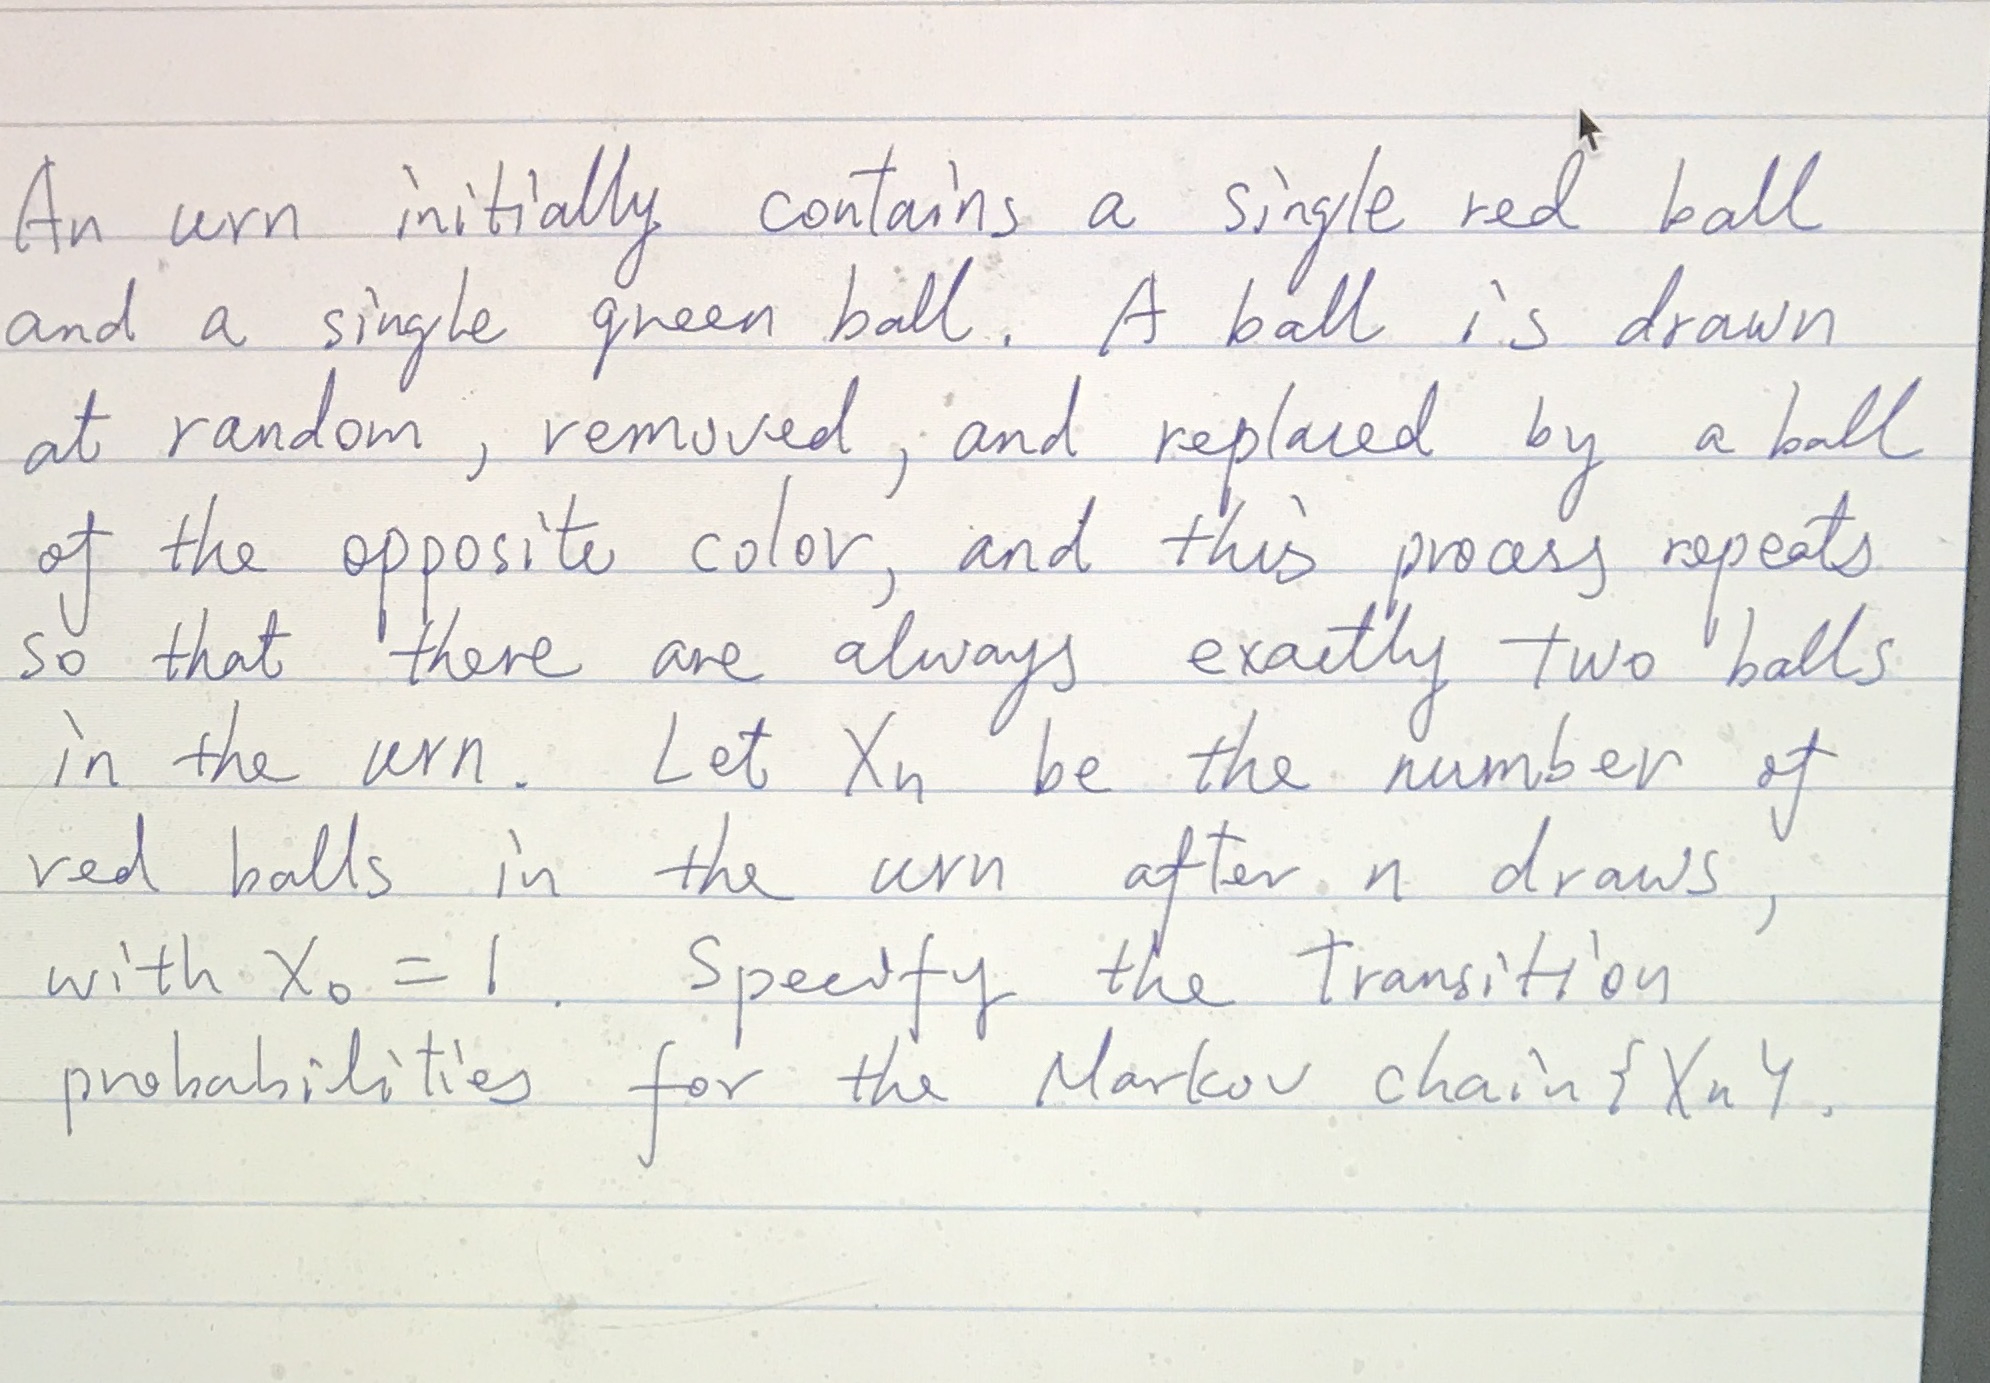 An urn initially contains a single red ball
and a single green ball. A ball is drawn
at random, removed, and replaced by a ball
of the opposite color, and this process repeats
so that there are always exactly two balls
in the urn. Let Xn be the number of
red balls in the urn after n draws,
with X0 = 1. Specify the Transition
probabilities for the Markov chain {Xn}.